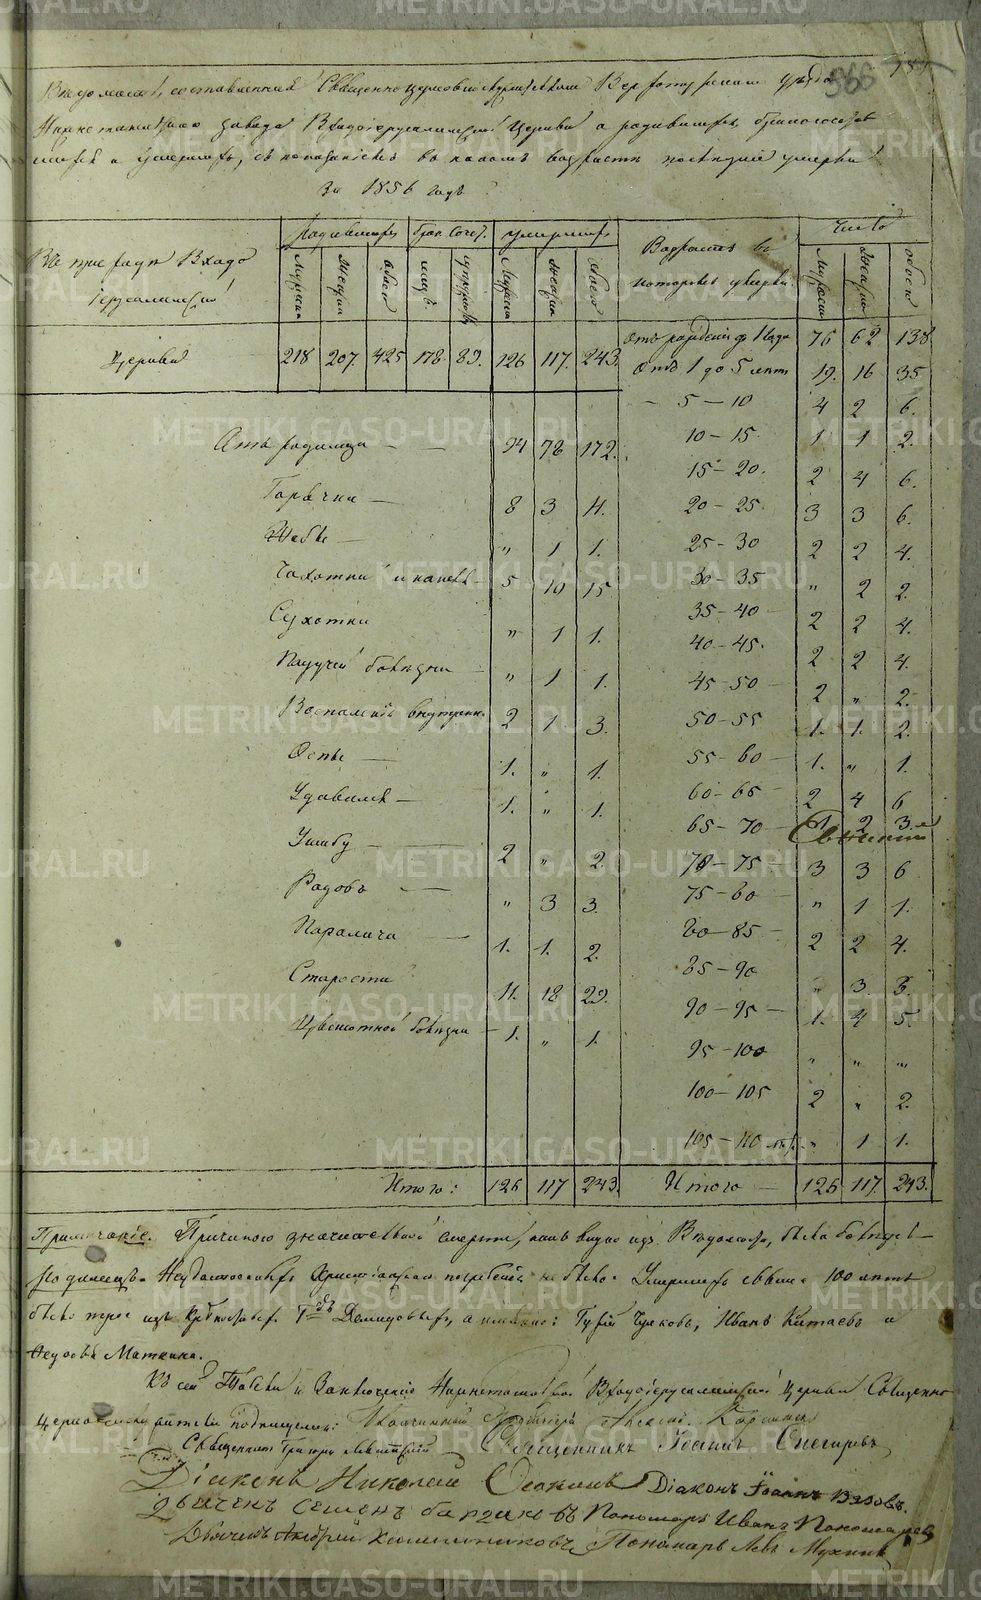 METRIKI.GASO-URAL.RU
566
Ведомость, составленная Священноцерковнослужителями Верхотурского уезда
Нижнетагильского завода Входоіерусалимской Церкви о родившихся, бракосочетав
шихся и умершихъ, съ показаніемъ въ какомъ возрасте последніе умерли
За 1856 годъ
Родившихся Брак. Сочет. умершихъ Возрастъ въ которомъ умерли Число
Въ приходе Входо
іерусалимской
Мужеска Женска обоего лицъ супруж. Мужска женска обоего Мужска Женска обоего
Церкви 218 207. 425 178 89. 126 117. 243. Отъ рожденія до 1 года 76 62 138
Отъ 1 до 5 летъ 19. 16 35
– 5 – 10 4 2 6.
Отъ родимца – 94 78 172. 10 – 15 1 1 2.
15 – 20. 2 4 6.
Горячки – 8 3 11. 20 – 25. 3 3 6.
Жабы – „ 1 1. 25 – 30 2 2 4.
Чахотки и кашля – 5 10 15 30 – 35 „ 2 2.
Сухотки „ 1 1. 35 – 40 2 2 4.
40 – 45. 2 2 4.
Падучей болезни – „ 1 1. 45 – 50 – 2 „ 2.
Воспаленія внутрен. 2 1 3. 50 – 55 1. 1. 2.
Оспы – 1. „ 1. 55 – 60 – 1. „ 1.
Удавился – 1. „ 1. 60 – 65 2 4 6
65 – 70 – 1 2 3.
Ушибу – 2 „ 2 70 – 75 3 3 6
Родовъ – „ 3 3. 75 – 80 – „ 1 1.
Паралича – 1. 1. 2. 80 – 85 – 2 2 4.
85 – 90 „ 3. 3.
Старости 11. 18 29. 90 – 95 – 1. 4 5.
Цынготной болезни – 1. „ 1. 95 – 100 „ „ „
100 – 105 2 „ 2.
105 – 110 летъ. „ 1 1.
Итого: 126 117 243. Итого – 126. 117. 243.
Примечаніе. Причиною значительной смерти, какъ видно изъ Ведомости, была болезнь –
Родимецъ. Неудостоенныхъ Христіанскаго погребенія не было. Умершихъ свыше 100 летъ
было трое изъ Крепостныхъ Г.дъ Демидовыхъ, а именно: Гурій Чуковъ, Иванъ Китаевъ и
Федосья Маткина.
Къ сей Табели и Заключенію Нижнетагильской Входоіерусалимской Церкви Священно
церковнослужители подписуемся:
Священникъ Григорій Левитскій Священникъ Іоаннъ Снегиревъ
Діаконъ Николай Діаконъ Іоаннъ Вязовъ.
Дьячекъ Семенъ Пономарь Иванъ Пономаревъ
Дьячекъ Андрей Хионниковъ, Пономарь Левъ Мухинъ